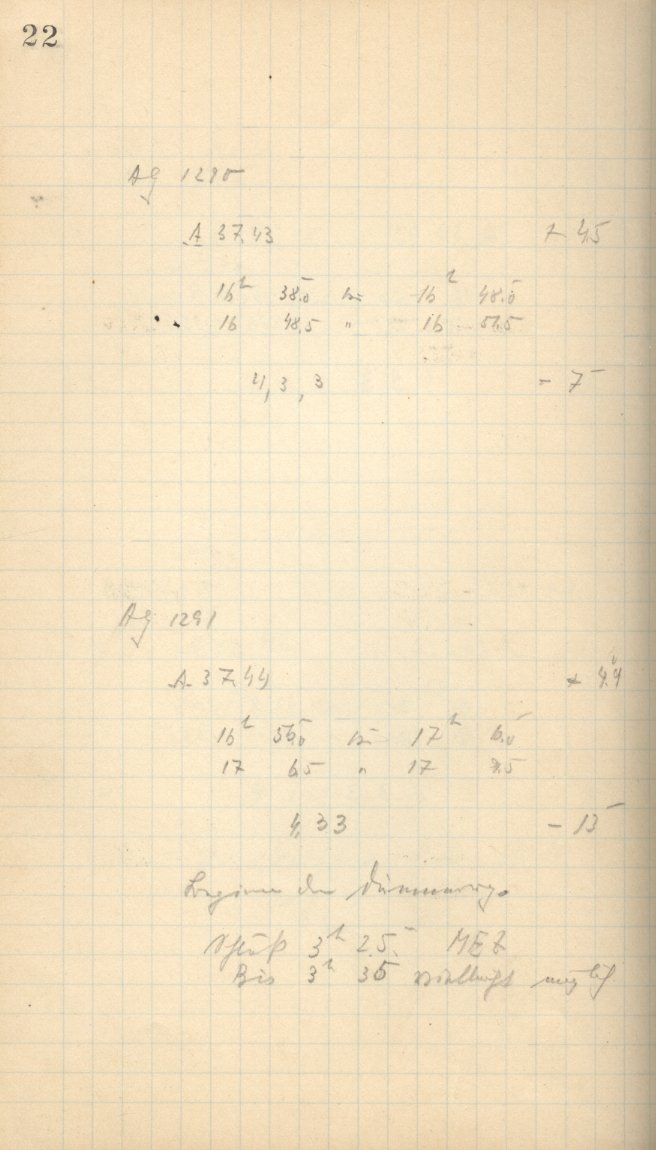 22
Ag 1290
A 37.43 + 4.5
16h 38.0 bis 16h 48.0
16 48.5 " 16 51.5
4, 3, 3 - 7
Ag 1291
A 37.44 + 4.4
16h 56.0 bis 17h 6.0
17 6.5 " 17 9.5
4, 3 3 - 13
Beginn der Dämmerung.
Schluß 3h 25 MEZ
Bis 3h 35 vielleicht möglich